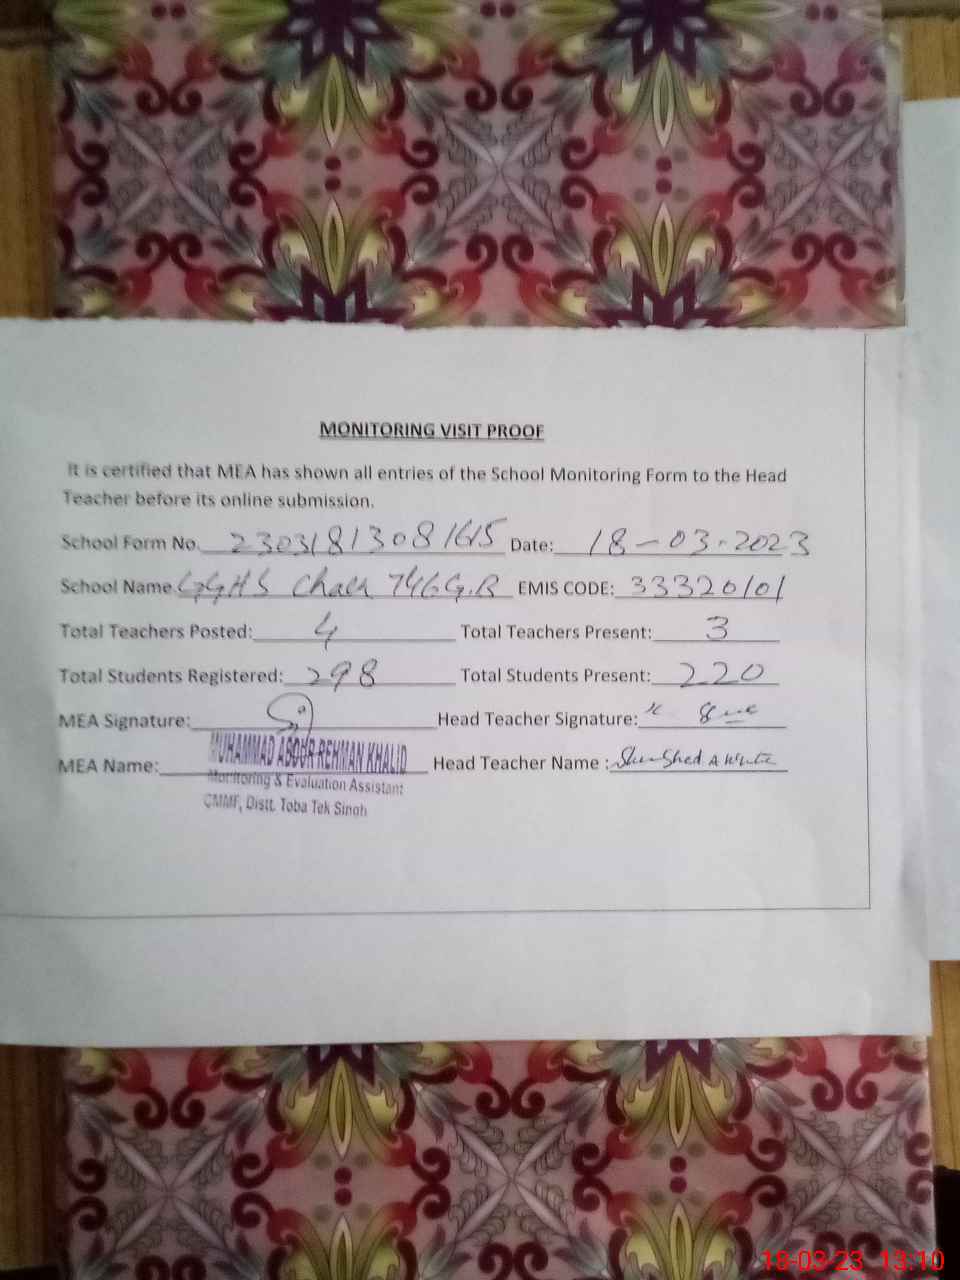 MONITORING VISIT PROOF
It is certified that MEA has shown all entries of the School Monitoring Form to the Head
Teacher before its online submission.
School Form No. 23031813081615 Date: 18-03-2023
School Name GGHS Chak 746 G.B EMIS CODE: 33320101
Total Teachers Posted: 4 Total Teachers Present: 3
Total Students Registered: 298 Total Students Present: 220
MEA Signature: Head Teacher Signature:
MEA Name: MUHAMMAD ABDUR REHMAN KHALID Head Teacher Name :
Monitoring & Evaluation Assistant
CMMF, Distt. Toba Tek Singh
18-03-23 13:10